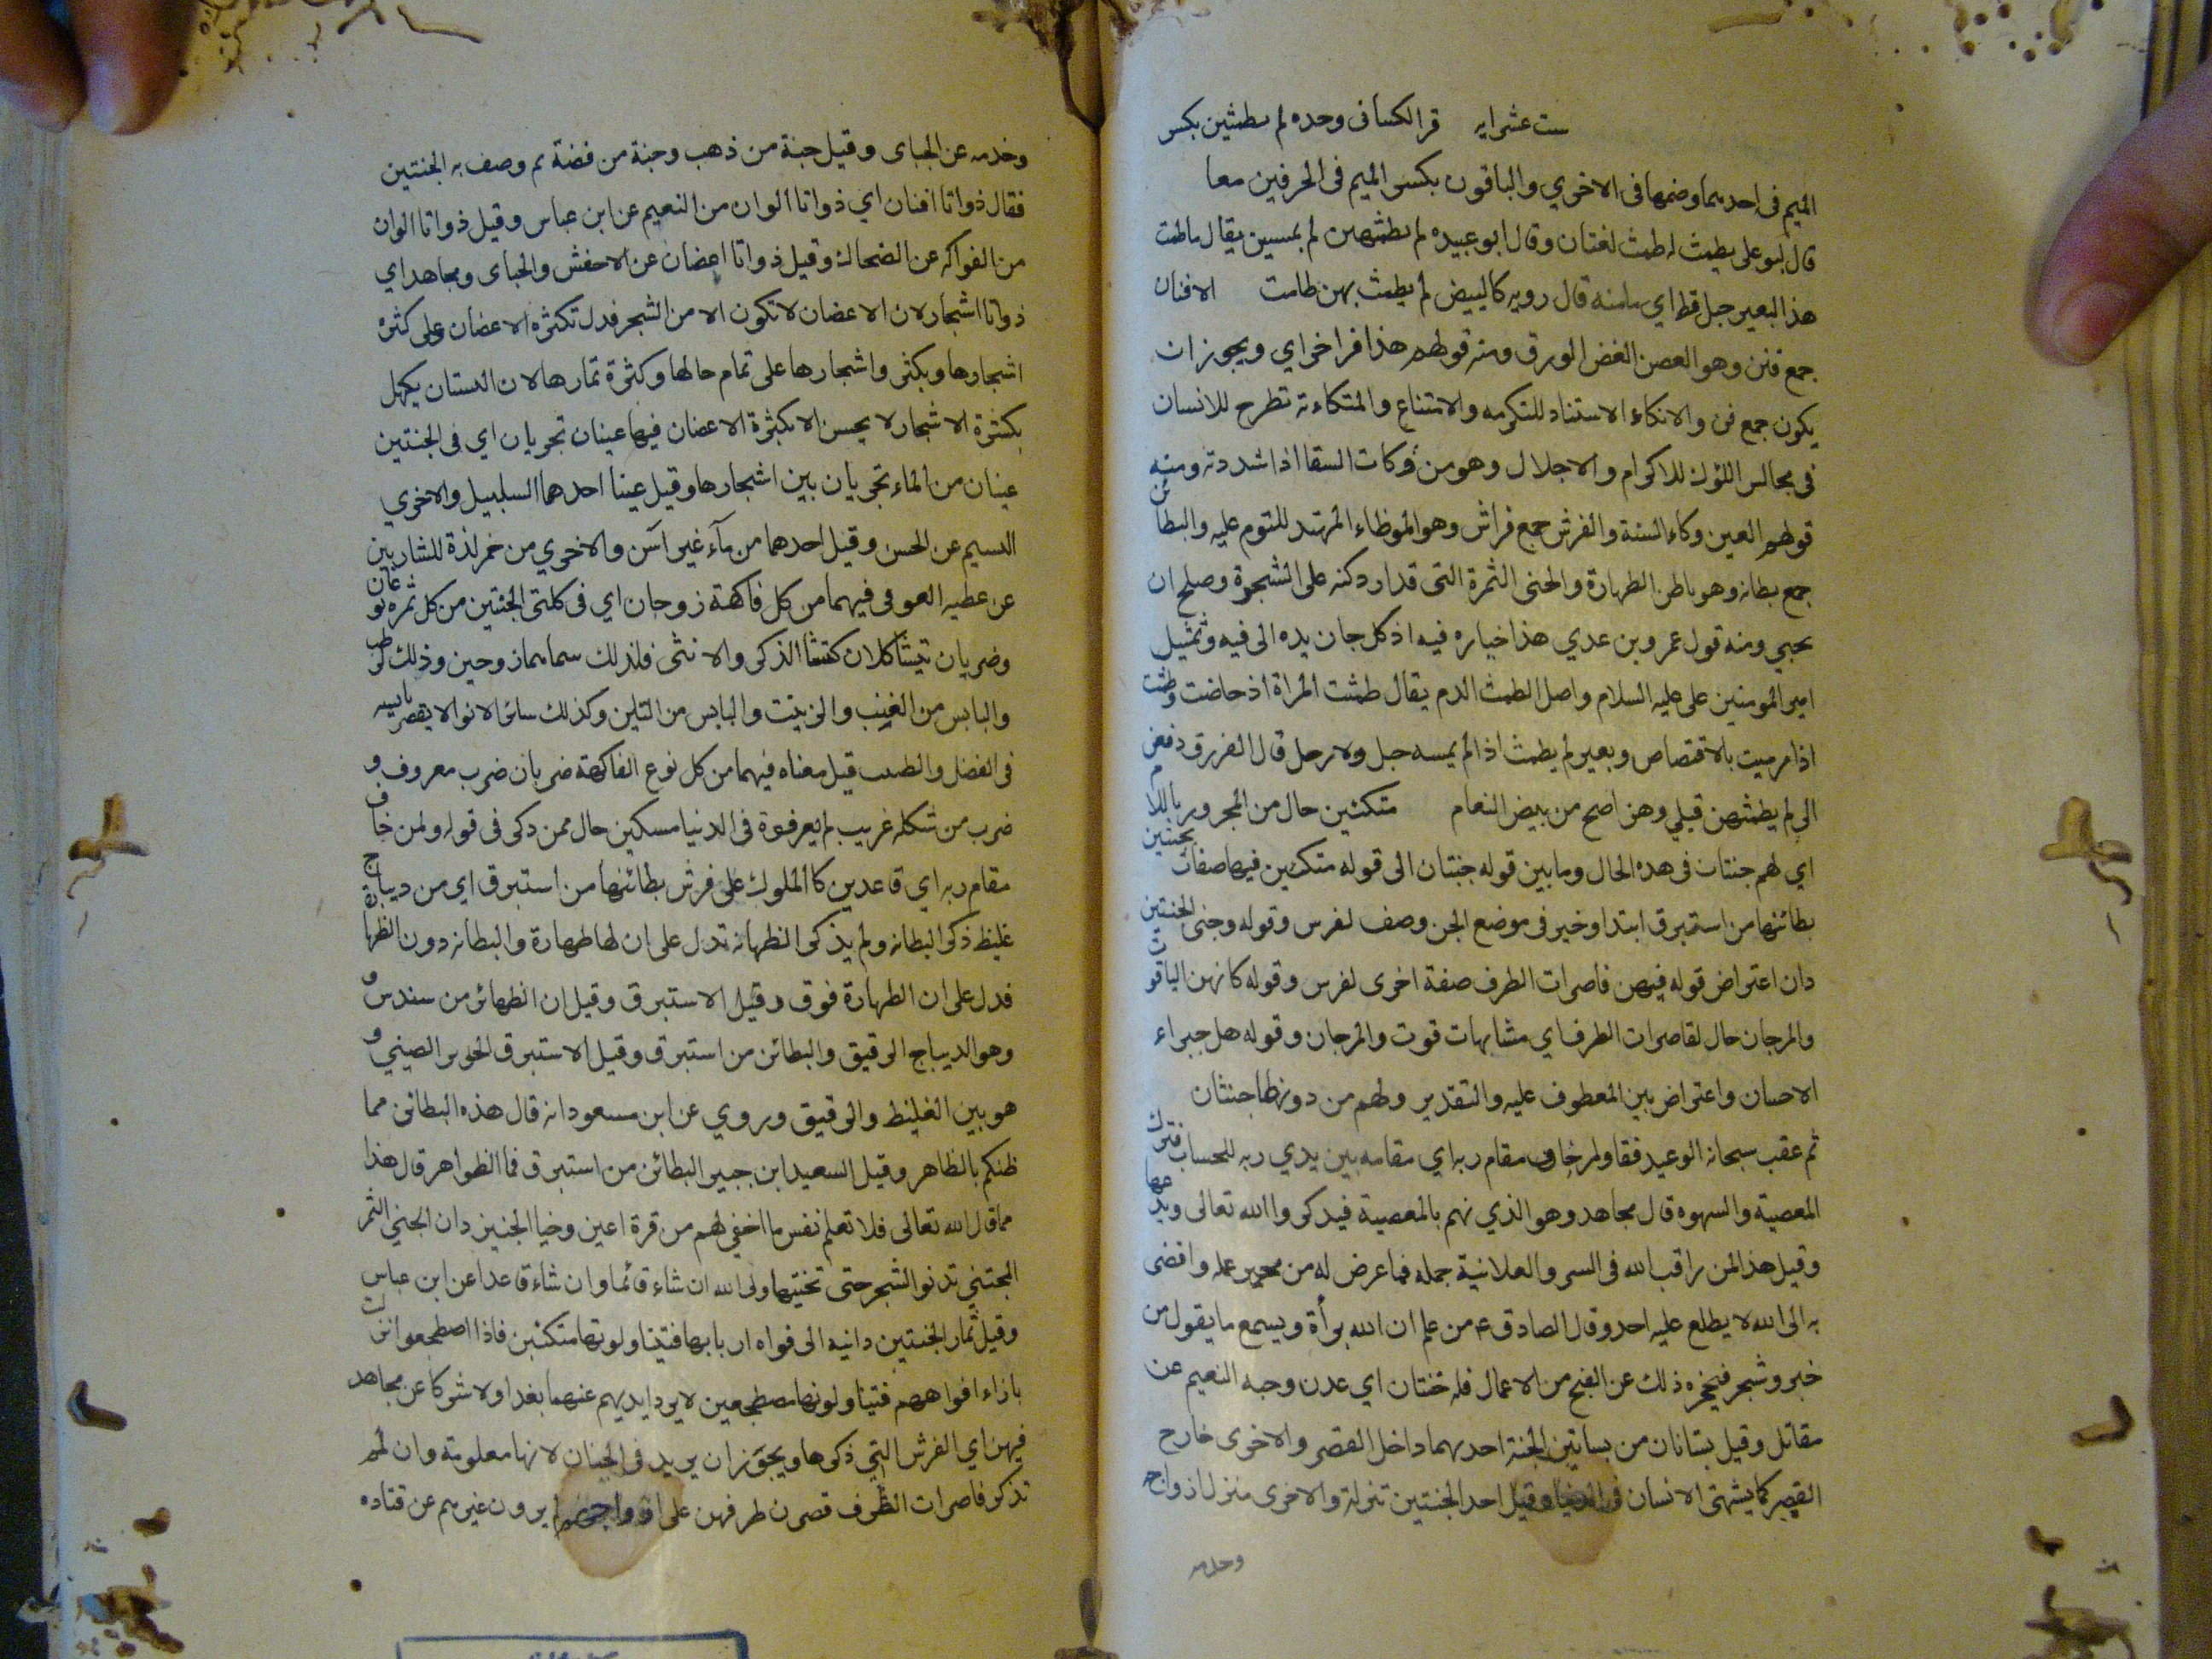 ست عشر ايه قرا الكسائى وحده لم يطمثهن بكسر
الميم فى احديهما وضمها فى الاخري والباقون بكسر الميم فى الحرفين معا
قال ابو على يطمث لطمث لغتان وقال ابو عبيده لم يطمثهن لم يمسسهن يقال ما طمث
هذا البعير حبل قط اي ما مسه قال روبه كالبيض لم يطمث بهن طامث الافنان
جمع فنن وهو الغصن الغض الورق ومنه قولهم هذا فن اخر اي ويجوز ان
يكون جمع فن والاتكاء الاستناد للتكرمه والامتناع والمتكاءة تطرح للانسان
فى مجالس الملوك للاكرام والاجلال وهو من وكات السقا اذا شددته ومنه
قولهم العين وكاء السته والفرش جمع فراش وهو الموظاء الممهد للنوم عليه والبطائن
جمع بطانه وهو باطن الظهارة والجنى الثمرة التى قد ادركته على الشجرة وصلح ان
يجبي ومنه قول عمرو بن عدي هذا خياره فيه اذ كل جان يده الى فيه وتمثيل
امير المومنين على عليه السلام واصل الطمث الدم يقال طمثت المراة اذ حاضت وطمثت
اذا رميت بالاقتصاص وبعير لم يطمث اذا لم يمسه حبل ولا رحل قال الفرزق دفعن
الى لم يطمثهن قبلي وهن اصح من بيض النعام متكئين حال من المجرور باللام
اي لهم جنتان فى هذه الحال وما بين قوله جنتان الى قوله متكئين فيها صفات لجنتين
بطائنها من استبرق ابتدا وخبر فى موضع الجر وصف لفرس وقوله وجنى الجنتين
دان اعتراض قوله فيهن قاصرات الطرف صفة اخرى لفرس وقوله كانهن الياقوت
والمرجان حال لقاصرات الطرف اي مشابهات قوت والمرجان وقوله هل جزاء
الاحسان واعتراض بين المعطوف عليه والتقدير ولهم من دونها جنتان
ثم عقب سبحانه الوعيد فقا ولمن خاف مقام ربه اي مقامه بين يدي ربه للحساب فترك
المعصية والسهوه قال مجاهد وهو الذي نهم بالمعصية فيذكر والله تعالى ويدعها
وقيل هذا لمن راقب الله فى السر والعلانية جمله فما عرض له من محرم عمله وافضى
به الى الله لا يطلع عليه احد وقال الصادق ع من علم ان الله يرأة ويسمع ما يقول من
خير وشر فيحجزه ذلك عن القبح من الاعمال فله جنتان اي عدن وجبه النعيم عن
مقاتل وقيل بستانان من بساتين الجنة احديهما داخل القصر والاخرى خارج
القصر كما يشتهى الانسان فى الدنيا وقيل احد الجنتين تنزله والاخرى منزل اذواجه
وخدمه
وخدمه عن الجباى وقيل جنة من ذهب وجنة من فضة ثم وصف به الجنتين
فقال ذواتا افنان اي ذواتا الوان من النعيم عن ابن عباس وقيل ذواتا الوان
من الفواكه عن الضحاك وقيل ذواتا اعضان عن الاحفش والجباى ومجاهد اي
ذواتا اشجار لان الاعضان لا تكون الا من الشجر فدل تكثره الاعضان على كثرة
اشجارها وبكثر واشجارها على تمام حالها وكثرة ثمارها لان البستان يكمل
بكثرة الاشجار لا يحسن الا بكثرة الاعضان فيها عينان تجريان اي فى الجنتين
عينان من الماء تجريان بين اشجارها وقيل عينا احدهما السلبيل والاخري
التسيم عن الحسن وقيل احدهما من مآء غير آسن والاخري من خمر لذة للشاربين
عن عطيه العوفى فيهما من كل فاكهة زوجان اي فى كلتى الجنتين من كل ثمره نوعان
وضربان تيشاكلان كتشا الذكر والانثى فلذلك سماهما زوجين وذلك كرطب
واليابس من العنب والزيت واليابس من التين وكذلك سائر الانوا لا يقصر يابسه
فى الفضل والطيب قيل معناه فيهما من كل نوع الفاكهة ضربان ضرب معروف و
ضرب من شكله غريب لم يعرفوة فى الدنيا مسكين حال ممن ذكر فى قوله ولمن خاف
مقام ربه اي قاعدين كا الملوك على فرش بطائنها من استبرق اي من ديباج
غليظ ذكر البطانه ولم يذكر الظهانه تدل على ان لها ظهارة والبطانه دون الظهارة
فدل على ان الطهارة فوق وقيل الاستبرق وقيل ان الظهائر من سندس و
وهو الديباج الرقيق والبطائن من استبرق وقيل الاستبرق الحرير الصيني و
هو بين الغليظ والرقيق وروي عن ابن مسعود انه قال هذه البطائن مما
ظنكم بالظاهر وقيل السعيد ابن جبير البطائن من استبرق فما الظواهر قال هذا
مما قال الله تعالى فلا تعلم نفس ما اخفي لهم من قرة اعين وخبا الجنين دان الجني الثمر
المجتني تدنو الشجر حتى تختيها ولى الله ان شاء قائما وان شاء قاعدا عن ابن عباس
وقيل ثمار الجنتين دانيه الى فواه اربابها فتيناولونها متكئين فاذا اصطجعوا نزلت
بازاء افواههم فتيناولونها مصطجعين لا يرد ايديهم عنهما بغدا ولا شوكا عن مجاهد
فيهن اي الفرش التي ذكرها ويجوز ان يريد فى الجنان لانها معلومته وان لم
تذكر قاصرات الطرف قصرن طرفهن على ازواجهم لم يرون غيرهم عن قتاده